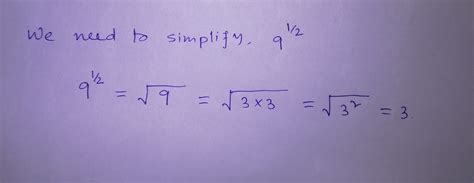 We need to simplify. 9^1/2
9^1/2 = √9 = √3×3 = √3² = 3.